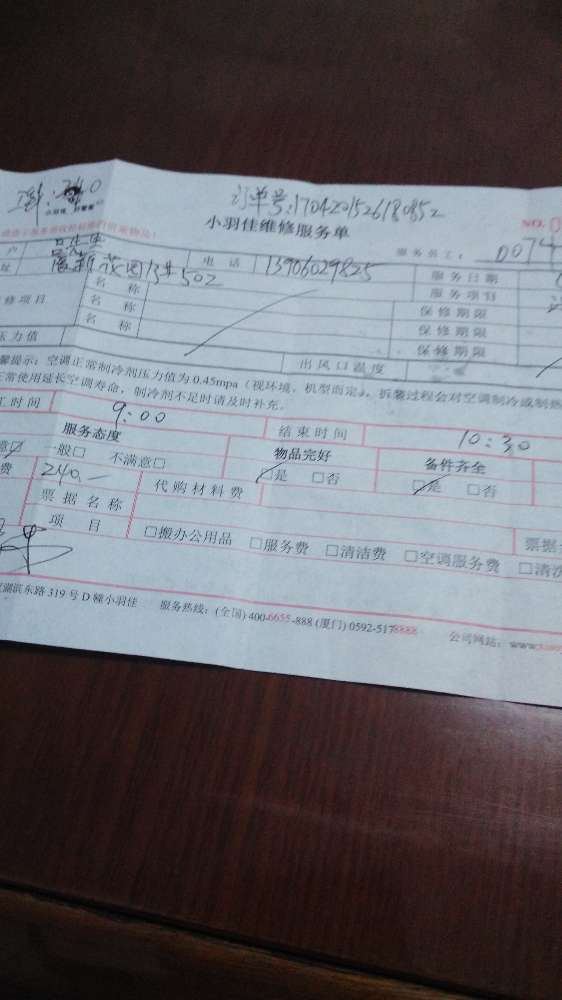 订单号:1704201526180852
小羽佳维修服务单
NO.
服务员工: D074
户 吕先生 电话 13906029825 服务日期
址 花园13#502 服务项目
修项目 名称 保修期限
名称 保修期限
名称 保修期限
压力值 出风口温度
馨提示: 空调正常制冷剂压力值为0.45mpa (视环境, 机型而定), 拆装过程会对空调制冷或制热
正常使用延长空调寿命, 制冷剂不足时请及时补充。
工时间 9:00 结束时间 10:30
服务态度 物品完好 备件齐全
意☑ 一般□ 不满意□ ☑是 □否 ☑是 □否
费 240.- 代购材料费
票据名称 票据
项目 □搬办公用品 □服务费 □清洁费 □空调服务费 □清洗
湖滨东路319号D幢小羽佳 服务热线: (全国) 400-6655-888 (厦门) 0592-5178888 公司网站: www.